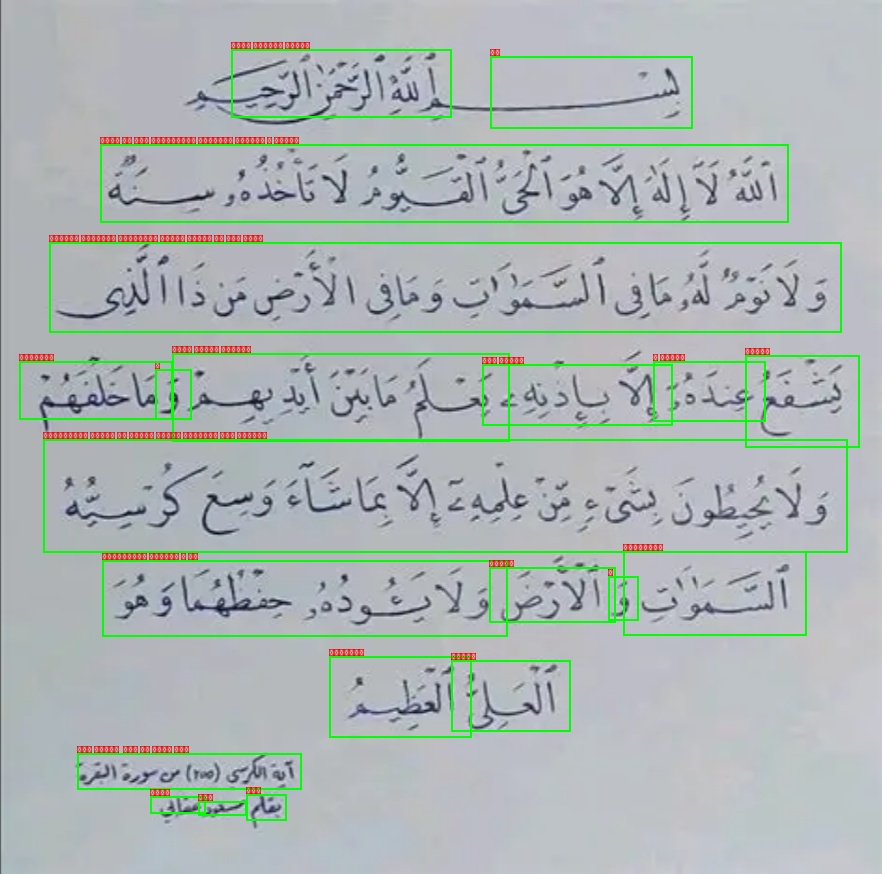 بِسْمِ ٱللَّهِ ٱلرَّحْمَٰنِ ٱلرَّحِيمِ
ٱللَّهُ لَآ إِلَٰهَ إِلَّا هُوَ ٱلْحَىُّ ٱلْقَيُّومُ لَا تَأْخُذُهُۥ سِنَةٌ
وَلَا نَوْمٌ لَّهُۥ مَا فِى ٱلسَّمَٰوَٰتِ وَمَا فِى ٱلْأَرْضِ مَن ذَا ٱلَّذِى
يَشْفَعُ عِندَهُۥٓ إِلَّا بِإِذْنِهِۦ يَعْلَمُ مَا بَيْنَ أَيْدِيهِمْ وَمَا خَلْفَهُمْ
وَلَا يُحِيطُونَ بِشَىْءٍ مِّنْ عِلْمِهِۦٓ إِلَّا بِمَا شَآءَ وَسِعَ كُرْسِيُّهُ
ٱلسَّمَٰوَٰتِ وَٱلْأَرْضَ وَلَا يَـُٔودُهُۥ حِفْظُهُمَا وَهُوَ
ٱلْعَلِىُّ ٱلْعَظِيمُ
آية الكرسي (٢٥٥) من سورة البقرة
بقلم مسعود